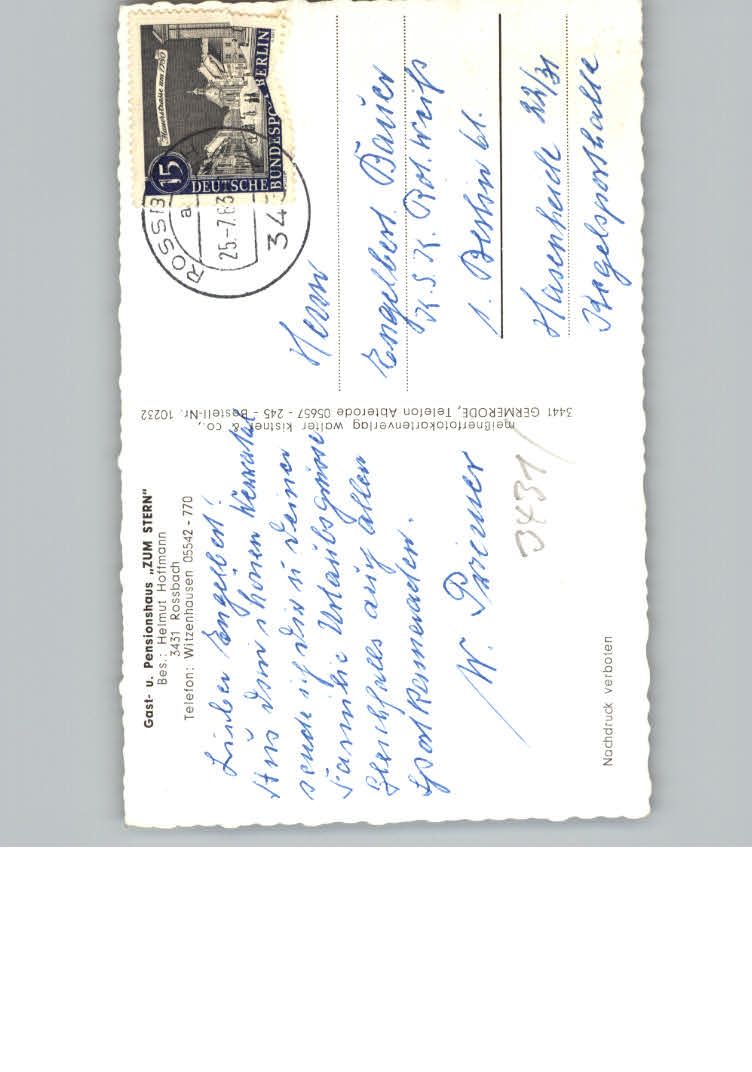 Gast- u. Pensionshaus „ZUM STERN"
Bes.: Helmut Hoffmann
3431 Rossbach
Telefon: Witzenhausen 05542 - 770
Lieber Engelbert!
Aus dem schönen Werratal
sende ich Dir u Deiner
Familie Urlaubsgrüsse
Gleichfalls auch allen
Sportkameraden.
W.
3431
Nachdruck verboten
meißnerfotokartenverlag walter kistner & co.,
3441 GERMERODE, Telefon Abterode 05657 - 245 - Bestell-Nr. 10232
Mauerstrasse um 1780
15
DEUTSCHE BUNDESPOST BERLIN
ROSSB
a
25.-7.63
34
Herrn
Engelbert Bauer
K.S.K. Rot. Weiß
1. Berlin 61.
Hasenheide 22/31
Kegelsporthalle